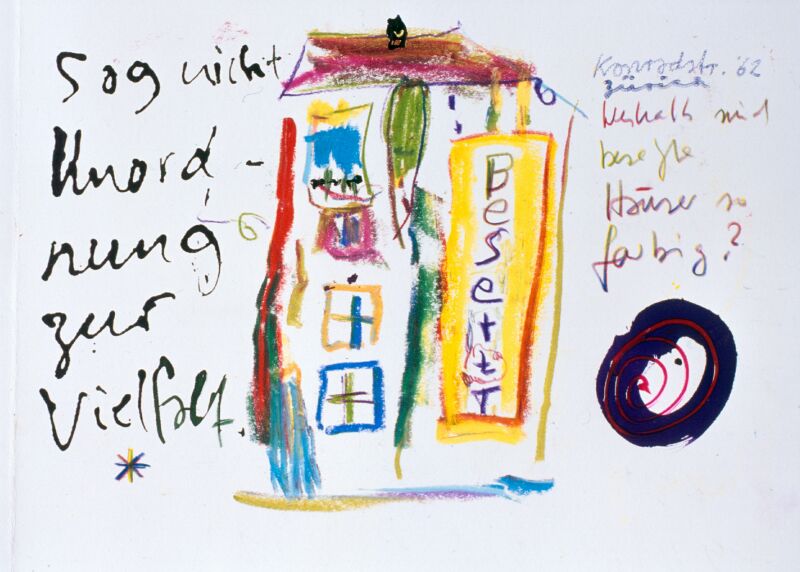 Sag nicht
Unord-
nung
zur
Vielfalt.
Besetzt
Konradstr. 62
Zürich
Weshalb sind
besetzte
Häuser so
farbig?